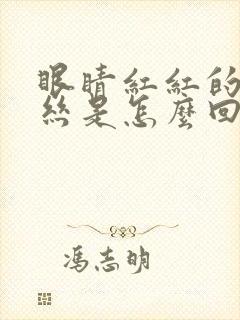 眼睛紅紅的
絲是怎麼回
馮志明